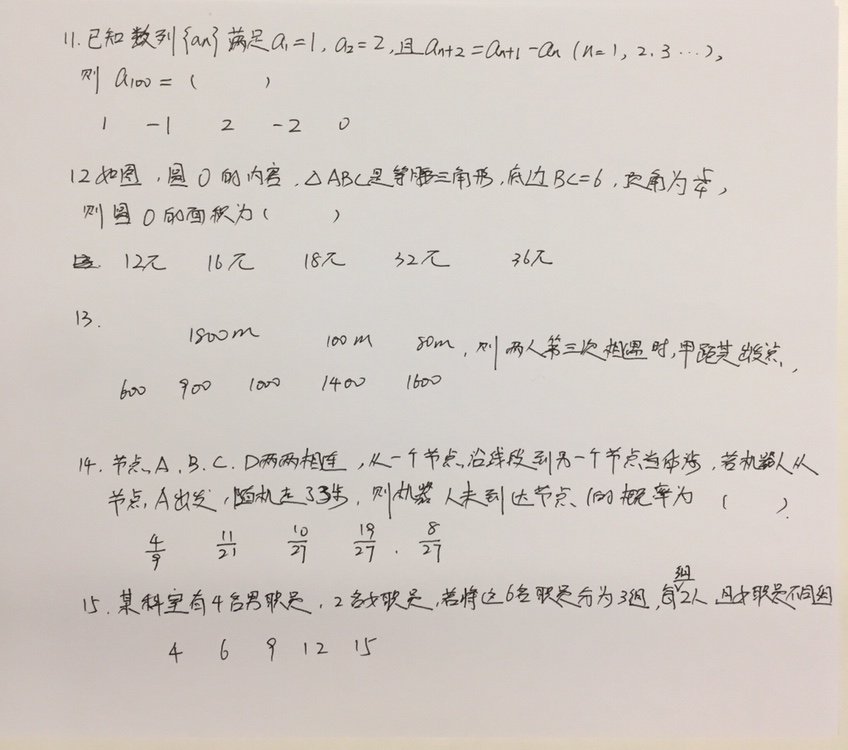 11.已知数列{an}满足a₁=1, a₂=2,且an+2=an+1-an (n=1, 2.3…),
则 a₁₀₀ = ( )
1 -1 2 -2 0
12如图,圆O的内容,△ABC是等腰三角形,底边BC=6,顶角为π/4,
则圆O的面积为( )
12π 16π 18π 32π 36π
13.
1800m 100m 80m,则两人第三次相遇时,甲距其出发点、
600 900 1000 1400 1600
14.节点A、B、C、D两两相连,从一个节点沿线段到另一个节点当作一步,若机器人从
节点A出发,随机走了3步,则机器人未到达节点C的概率为( )
4/9 11/27 10/27 19/27 . 8/27
15.某科室有4名男职员,2名女职员,若将这6名职员分为3组,每组2人,且女职员不同组
4 6 9 12 15